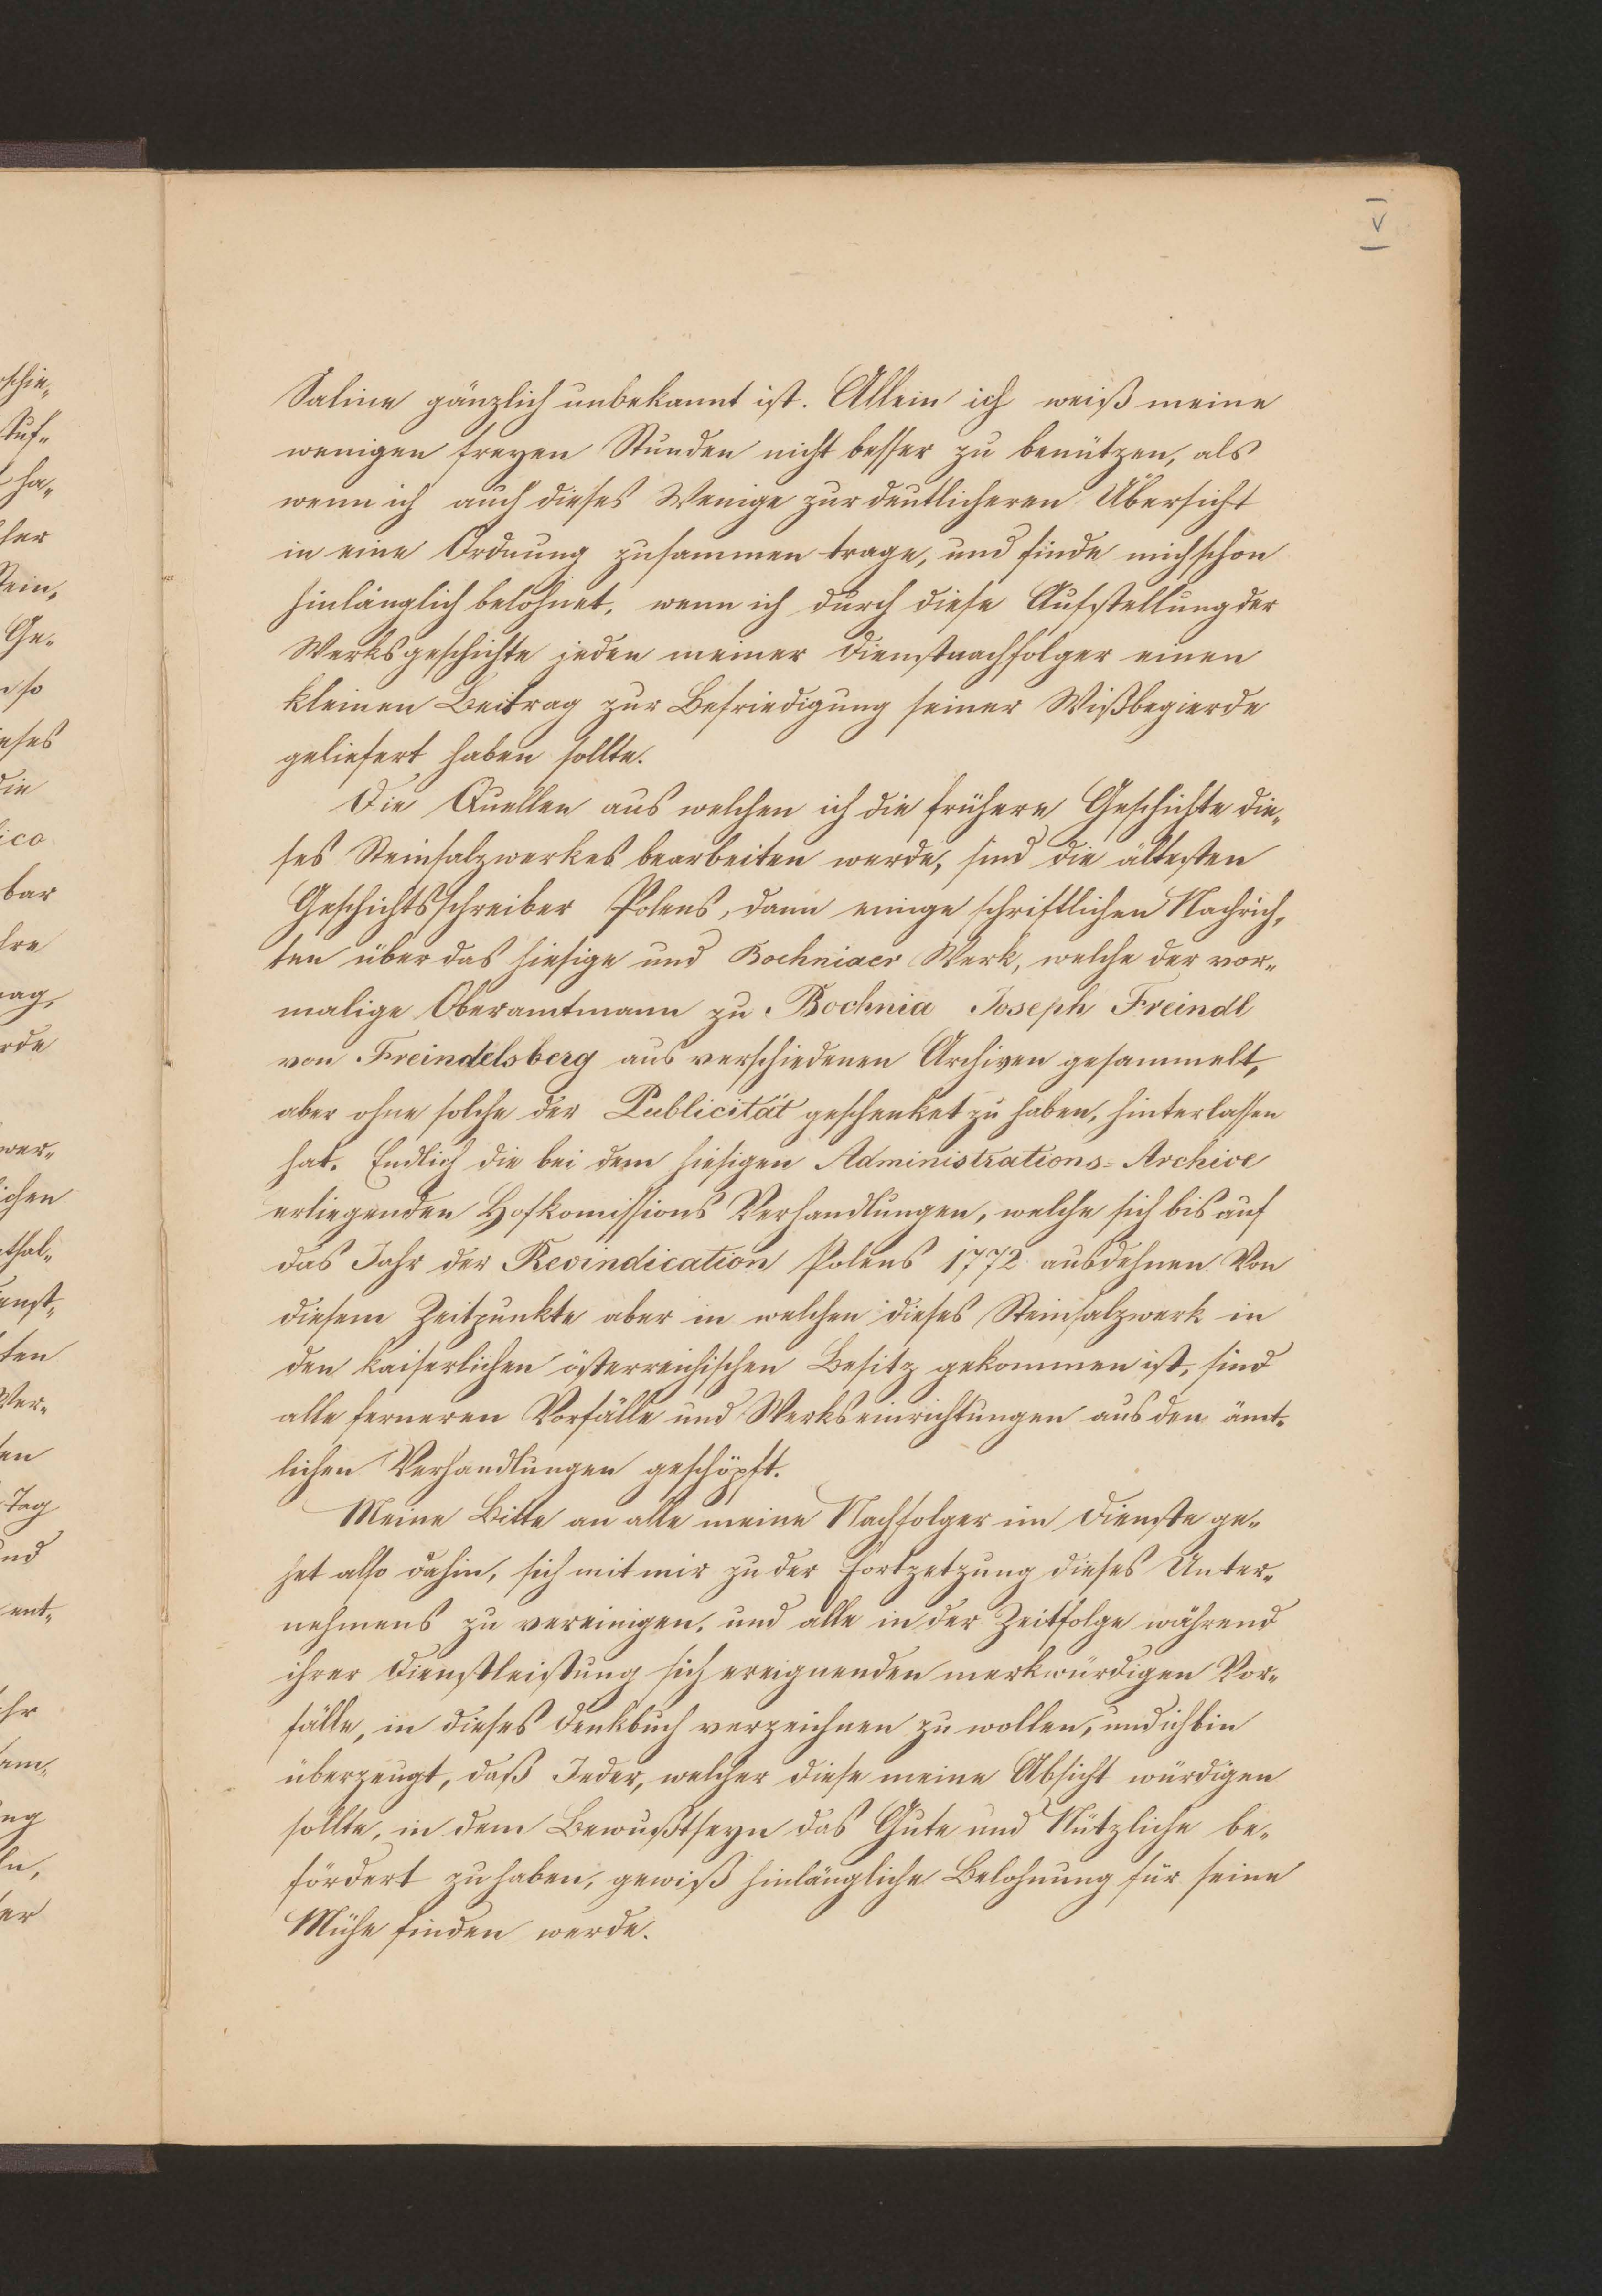 V
Saline gänzlich unbekannt ist. Allein ich weiß meine
wenigen freyen Stunden nicht besser zu benützen, als
wenn ich auch dieses Wenige zur deutlicheren Übersicht
in eine Ordnung zusammen trage, und finde mich schon
hinlänglich belohnet, wenn ich durch diese Aufstellung der
Werksgeschichte jeden meiner Dienstnachfolger einen
kleinen Beitrag zur Befriedigung seiner Wißbegierde
geliefert haben sollte.
Die Quellen aus welchen ich die frühere Geschichte die„
ses Steinsalzwerkes bearbeiten werde, sind die ältesten
Geschichtsschreiber Polens, dann einige schriftlichen Nachrich„
ten über das hiesige und Bochniaer Werk, welche der vor„
malige Oberamtmann zu Bochnia Joseph Freindl
von Freindelsberg aus verschiedenen Archiven gesammelt,
aber ohne solche der Publicität geschenket zu haben, hinterlassen
hat. Endlich die bei dem hiesigen Administrations=Archive
erliegenden Hofkomissions Verhandlungen, welche sich bis auf
das Jahr der Revindication Polens 1772 ausdehnen. Von
diesem Zeitpunkte aber in welchen dieses Steinsalzwerk in
den kaiserlichen österreichischen Besitz gekommen ist, sind
alle ferneren Vorfälle und Werkseinrichtungen aus den ämt„
lichen Verhandlungen geschöpft.
Meine Bitte an alle meine Nachfolger im Dienste ge„
het also dahin, sich mit mir zu der Fortzetzung dieses Unter„
nehmens zu vereinigen, und alle in der Zeitfolge während
ihrer Dienstleistung sich ereignenden merkwürdigen Vor„
fälle, in dieses Denkbuch verzeichnen zu wollen, und ich bin
überzeugt, daß Jeder, welcher diese meine Absicht würdigen
sollte, in dem Bewußtseyn das Gute und Nützliche be„
fördert zu haben, gewiß hinlängliche Belohnung für seine
Mühe finden werde.